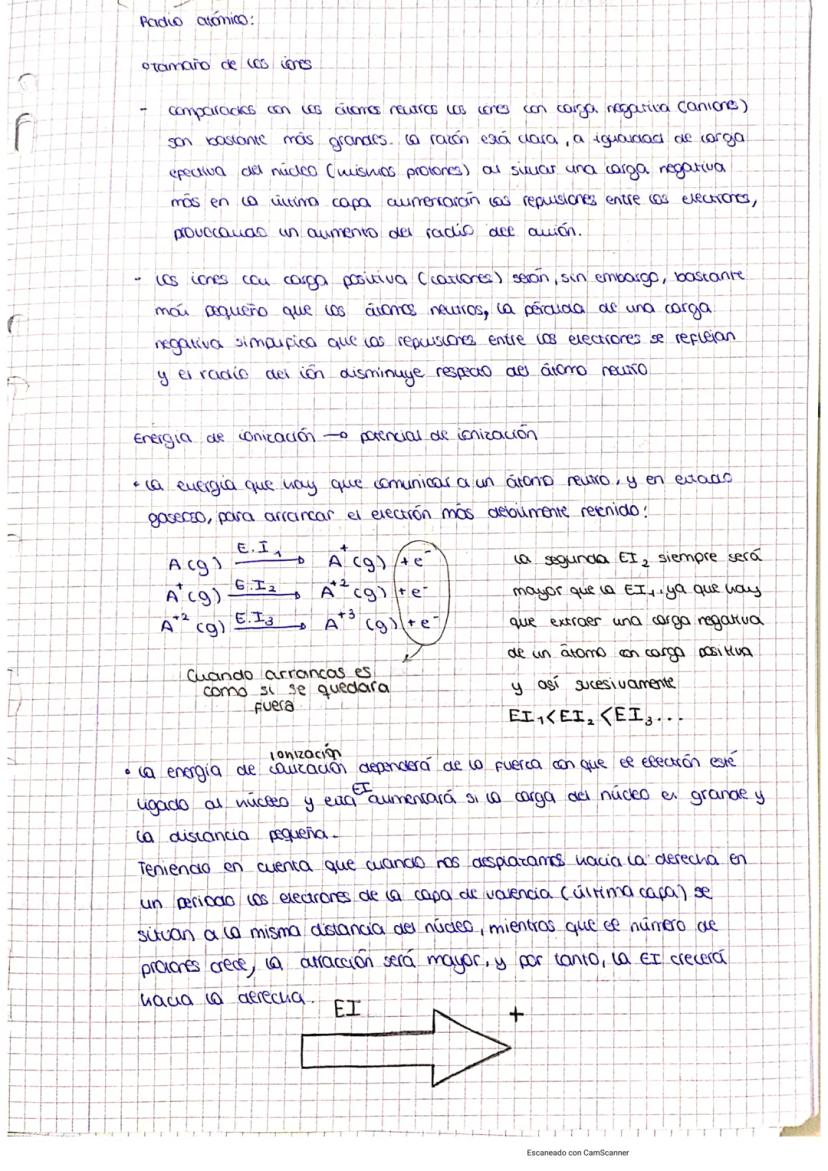 Radio atómico:
tamaño de los iones
- comparados con los átomos neutros los iones con carga negativa (aniones)
son bastante más grandes. la razón está clara, a igualdad de carga
efectiva del núcleo (mismos protones) al situar una carga negativa
más en la última capa aumentarán las repulsiones entre los electrones,
provocando un aumento del radio del anión.
- los iones con carga positiva (cationes) serán, sin embargo, bastante
más pequeño que los átomos neutros, la pérdida de una carga
negativa simplifica que las repulsiones entre los electrones se reflejan
y el radio del ión disminuye respecto del átomo neutro
Energía de ionización → potencial de ionización
• la energía que hay que comunicar a un átomo neutro, y en estado
gaseoso, para arrancar el electrón más debilmente retenido:
A(g) E.I₁ → A⁺(g) + e⁻
A⁺(g) E.I₂ → A⁺²(g) + e⁻
A⁺²(g) E.I₃ → A⁺³(g) + e⁻
Cuando arrancas es
como si se quedara
fuera
la segunda EI₂ siempre será
mayor que la EI₁, ya que hay
que extraer una carga negativa
de un átomo con carga positiva
y así sucesivamente
EI₁<EI₂<EI₃...
ionización
• la energía de dependerá de la fuerza con que el electrón esté
ligado al núcleo y esta EI aumentará si la carga del núcleo es grande y
la distancia pequeña.
Teniendo en cuenta que cuando nos desplazamos hacia la derecha en
un periodo los electrones de la capa de valencia (última capa) se
situan a la misma distancia del núcleo, mientras que el número de
protones crece, la atracción será mayor, y por tanto, la EI crecerá
hacia la derecha.
EI +
Escaneado con CamScanner